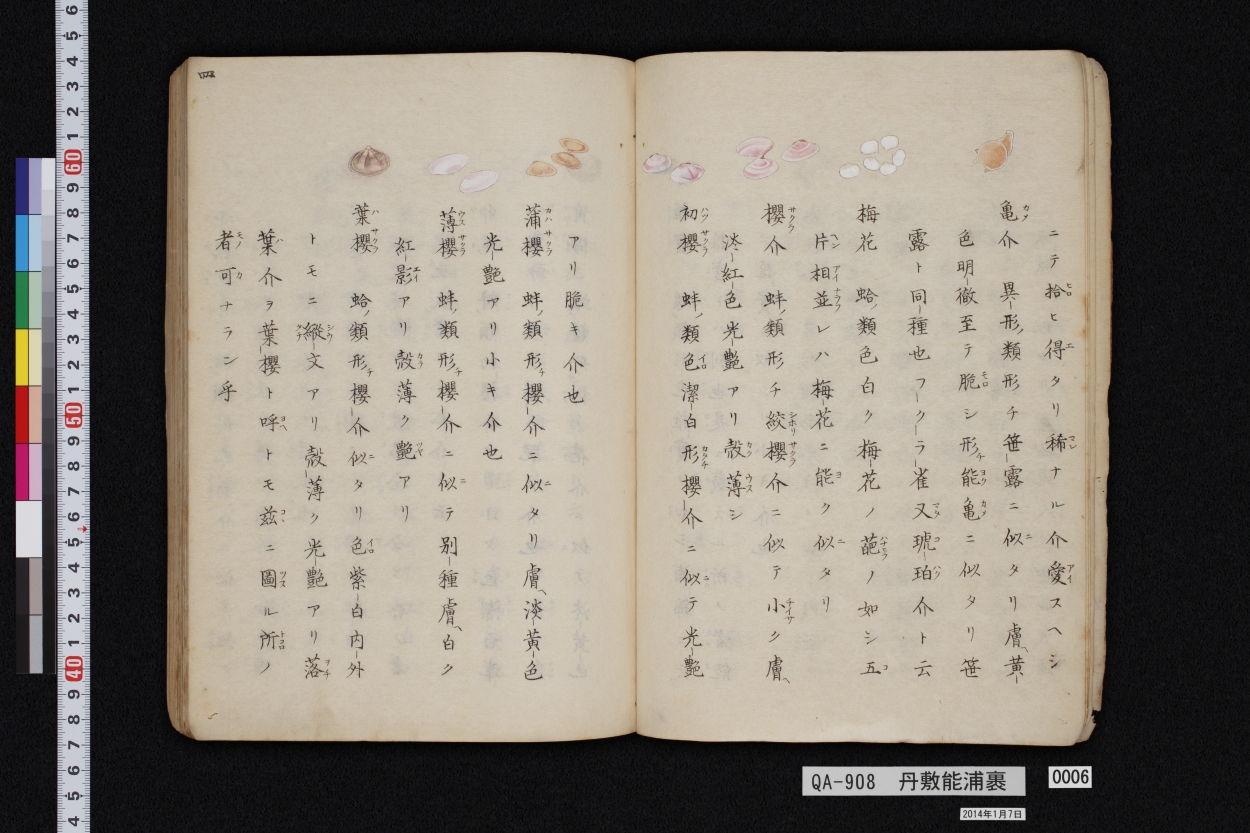 ニテ拾ヒ得タリ稀ナル介愛スヘシ
亀介 異形ノ類形チ笹露ニ似タリ膚ヘ黄
色明徹至テ脆シ形能亀ニ似タリ笹
露ト同種也フークーラー雀又琥珀介ト云
梅花 蛤ノ類色白ク梅花ノ葩ノ如シ五
片相並レハ梅花ニ能ク似タリ
櫻介 蚌ノ類形チ絞櫻介ニ似テ小ク膚ヘ
淡紅色光艶アリ殻薄シ
初櫻 蚌ノ類色潔白形櫻介ニ似テ光艶
アリ脆キ介也
蒲櫻 蚌ノ類形チ櫻介ニ似タリ膚ヘ淡黄色
光艶アリ小キ介也
薄櫻 蚌ノ類形チ櫻介ニ似テ別種膚ヘ白ク
紅影アリ殻薄ク艶アリ
葉櫻 蛤ノ類形チ櫻介ニ似タリ色紫白内外
トモニ縱文アリ殻薄ク光艶アリ落
葉介ヲ葉櫻ト呼ヘトモ茲ニ圖ル所ノ
者可ナラン乎
四
QA-908 丹敷能浦裹
0006
2014年1月7日